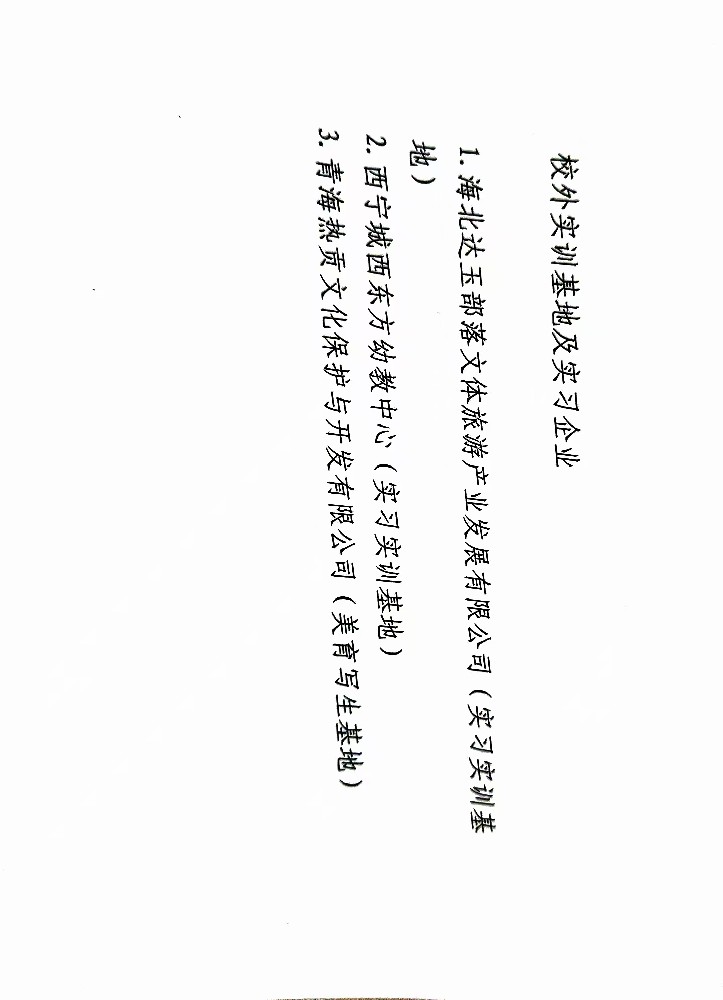 校外实训基地及实习企业
1. 海北达玉部落文体旅游产业发展有限公司（实习实训基
地）
2. 西宁城西东方幼教中心（实习实训基地）
3. 青海热贡文化保护与开发有限公司（美育写生基地）